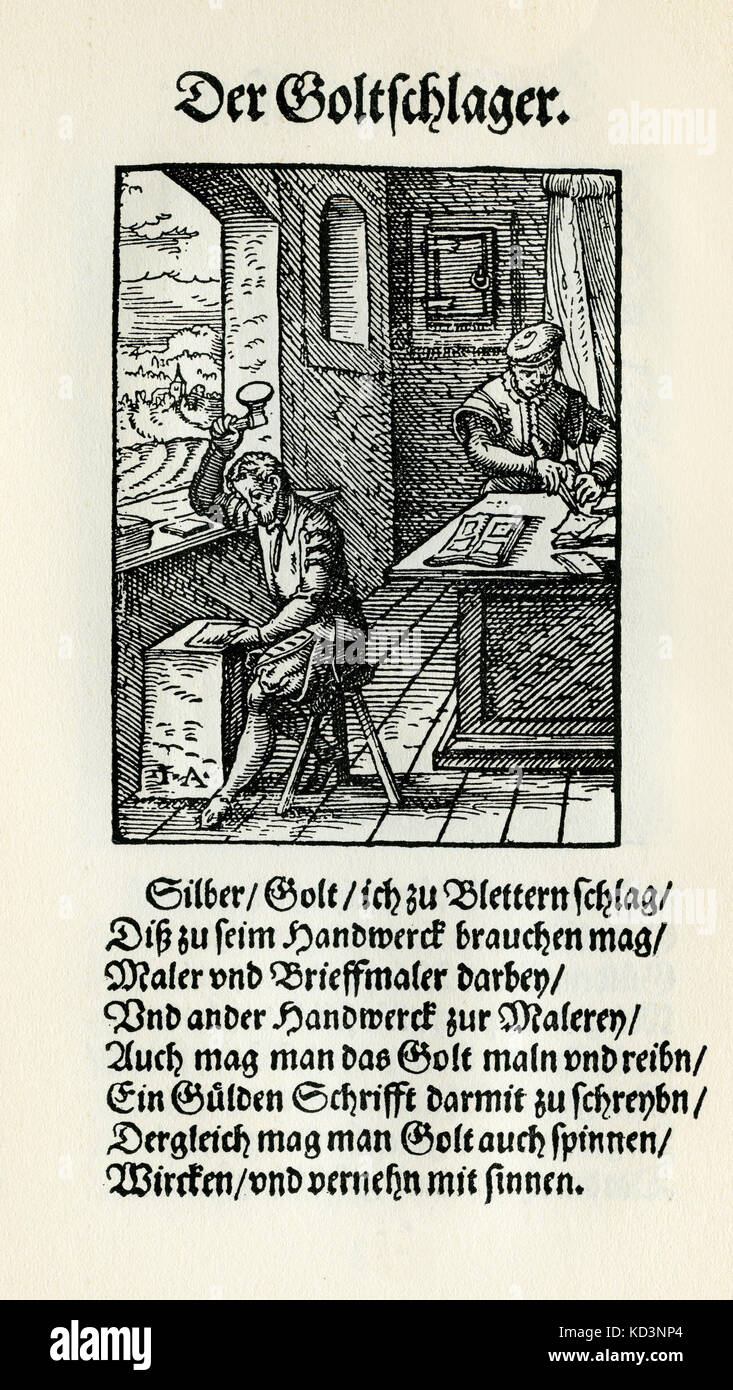 Der Goltschlager.
I·A·
Silber/ Golt/ ich zu Blettern schlag/
Diß zu seim Handwerck brauchen mag/
Maler vnd Brieffmaler darbey/
Vnd ander Handwerck zur Malerey/
Auch mag man das Golt maln vnd reibn/
Ein Gůlden Schrifft darmit zu schreybn/
Dergleich mag man Golt auch spinnen/
Wircken/ vnd vernehn mit sinnen.
a alamy
alamy
a
a
alamy
alamy
Image ID: KD3NP4
www.alamy.com